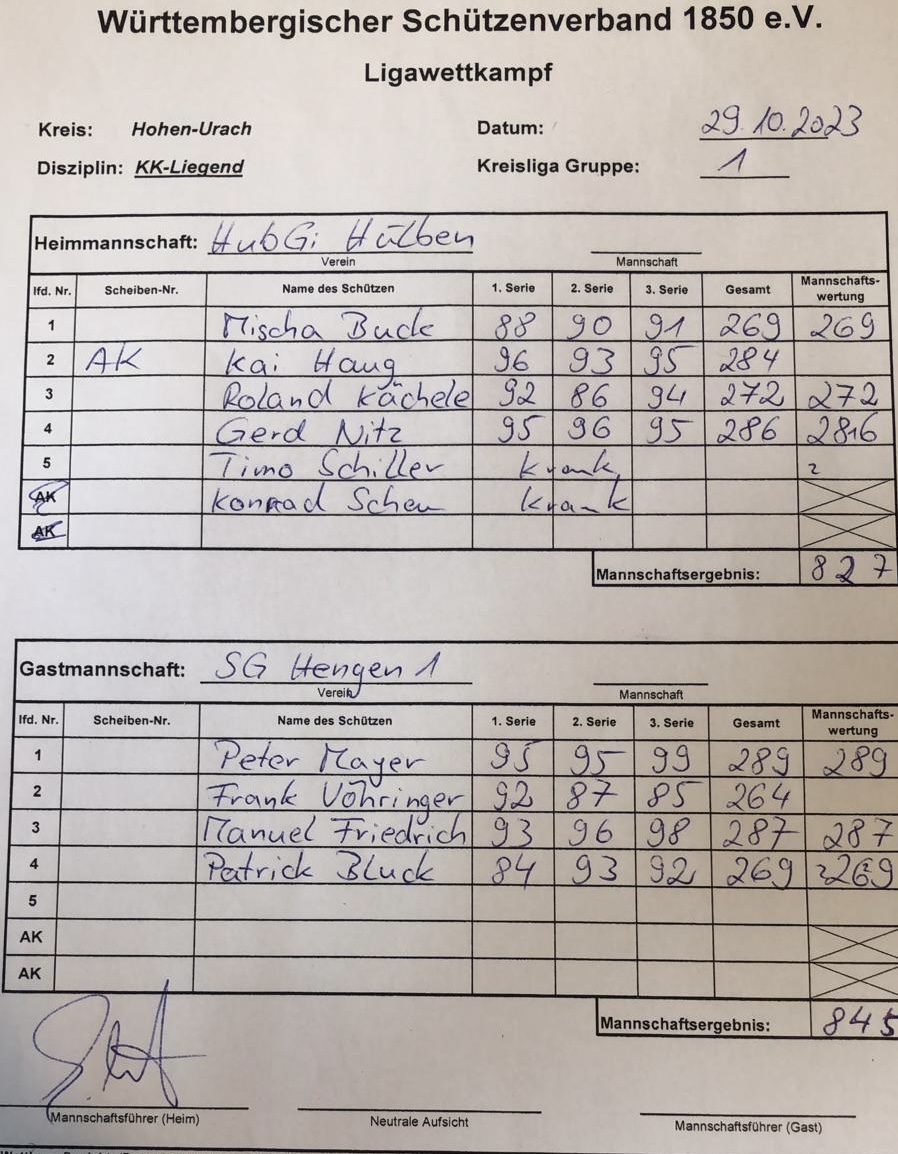 Württembergischer Schützenverband 1850 e.V.
Ligawettkampf
Kreis: Hohen-Urach Datum: 29.10.2023
Disziplin: KK-Liegend Kreisliga Gruppe: 1
Heimmannschaft: HubGi Hülben
Verein Mannschaft
lfd. Nr. Scheiben-Nr. Name des Schützen 1. Serie 2. Serie 3. Serie Gesamt Mannschafts-wertung
1 Mischa Buck 88 90 91 269 269
2 AK Kai Haug 96 93 95 284
3 Roland Kächele 92 86 94 272 272
4 Gerd Nitz 95 96 95 286 286
5 Timo Schiller krank 2
AK Konrad Scheu krank
AK
Mannschaftsergebnis: 827
Gastmannschaft: SG Hengen 1
Verein Mannschaft
lfd. Nr. Scheiben-Nr. Name des Schützen 1. Serie 2. Serie 3. Serie Gesamt Mannschafts-wertung
1 Peter Mayer 95 95 99 289 289
2 Frank Vöhringer 92 87 85 264
3 Manuel Friedrich 93 96 98 287 287
4 Patrick Bluck 84 93 92 269 269
5
AK
AK
Mannschaftsergebnis: 845
Mannschaftsführer (Heim) Neutrale Aufsicht Mannschaftsführer (Gast)